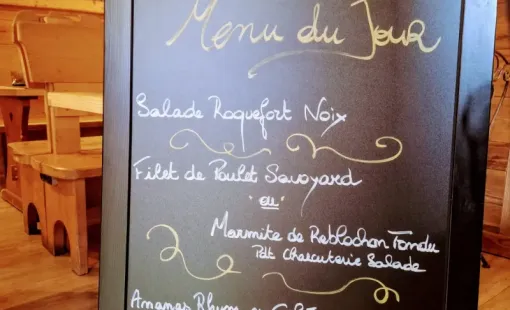 Menu du Jour
Salade Roquefort Noix
Filet de Poulet Savoyard
ou
Marmite de Reblochon Fondu
Pdt Charcuterie Salade
Ananas Rhum